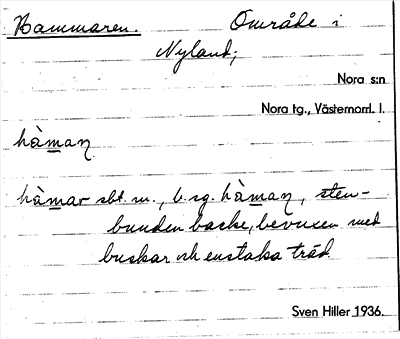 Hammaren. Område i
Nyland;
Nora s:n
Nora tg., Västernorrl. l.
hàman
hàmar sbt. m., b. sg. hàman, sten-
bunden backe, bevuxen med
buskar och enstaka träd.
Sven Hiller 1936.